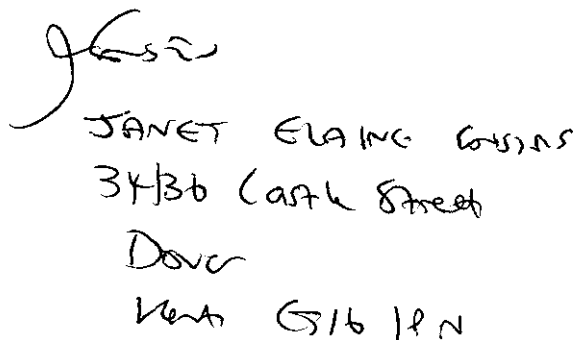 JANET ELAINE COUSINS
34/36 Castle Street
Dover
Kent CT16 1PN